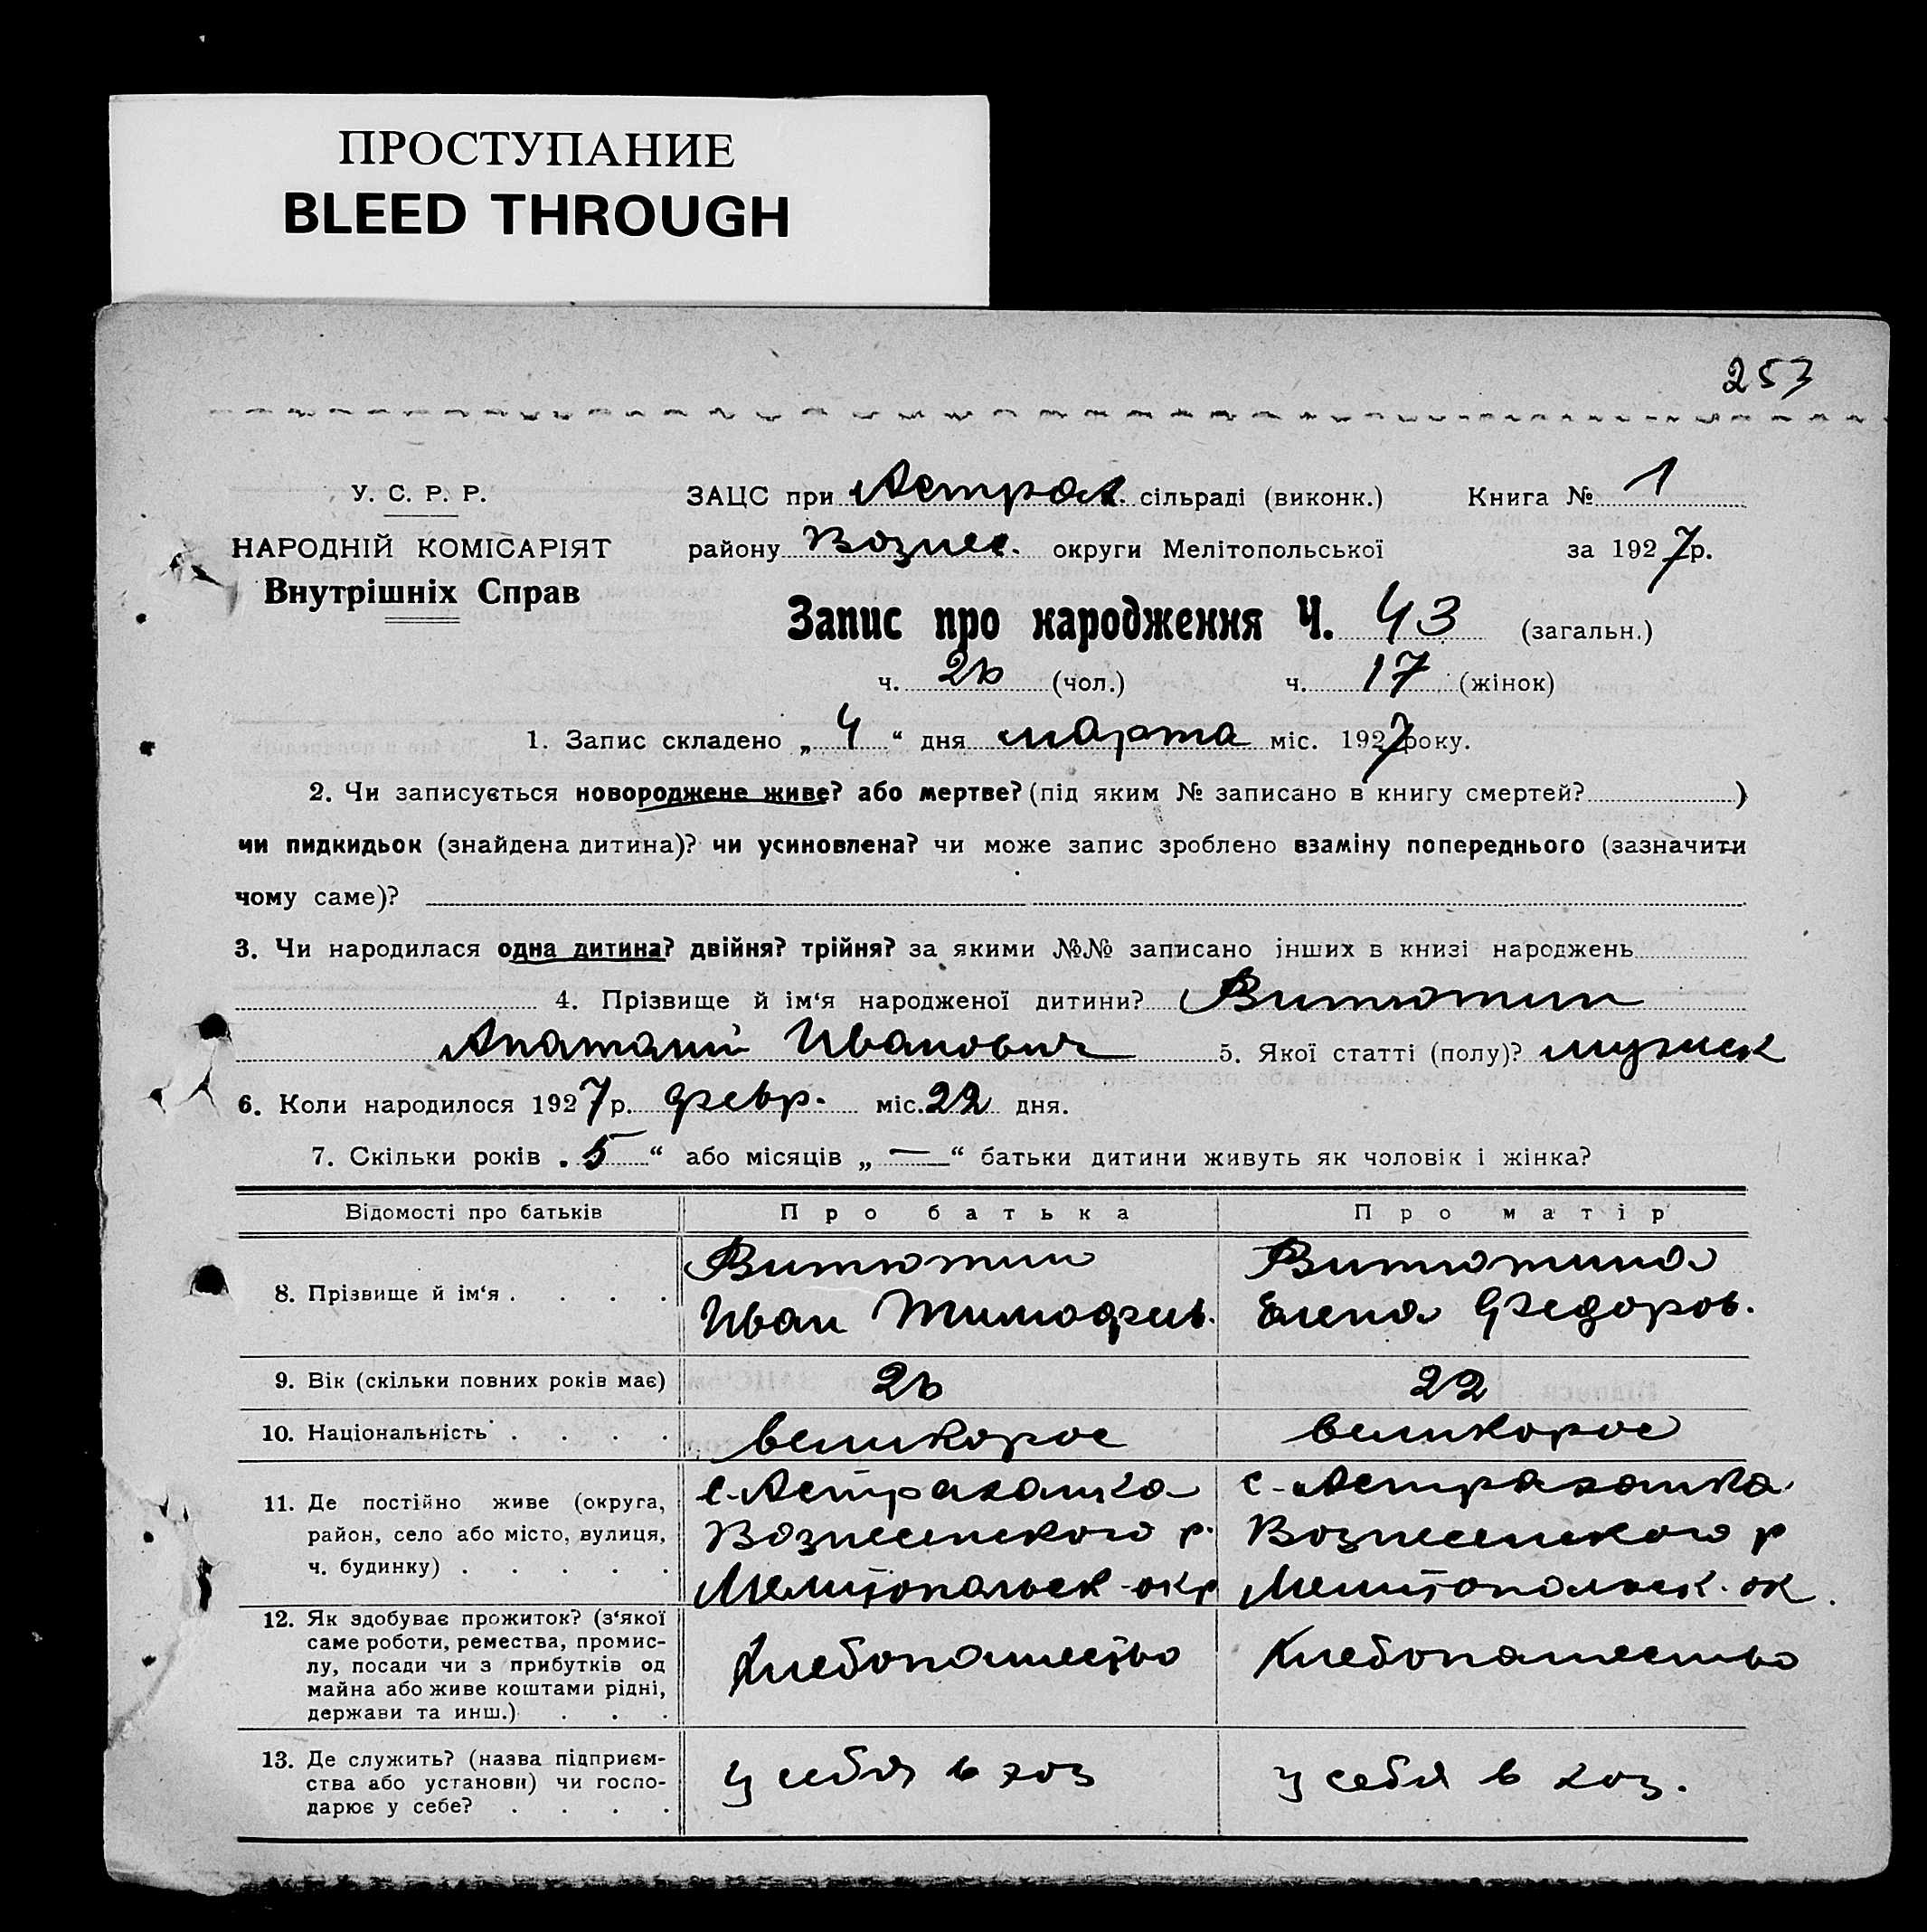 ПРОСТУПАНИЕ
BLEED THROUGH
253
У. С. Р. Р.
ЗАЦС при Астрах. сільраді (виконк.) Книга № 1
НАРОДНІЙ КОМІСАРІЯТ
району Вознес. округи Мелітопольської за 1927 р.
Внутрішніх Справ
Запис про народження Ч. 43 (загальн.)
ч. 26 (чол.) ч. 17 (жінок)
1. Запис складено „ 4 “ дня марта міс. 1927 року.
2. Чи записується новороджене живе? або мертве? (під яким № записано в книгу смертей? )
чи пидкидьок (знайдена дитина)? чи усиновлена? чи може запис зроблено взаміну попереднього (зазначити
чому саме)?
3. Чи народилася одна дитина? двійня? трійня? за якими №№ записано інших в книзі народжень
4. Прізвище й ім‘я народженої дитини? Витютин
Анатолий Иванович 5. Якої статті (полу)? мужск
6. Коли народилося 1927 р. февр. міс. 22 дня.
7. Скільки років „ 5 “ або місяців „ — “ батьки дитини живуть як чоловік і жінка?
Відомості про батьків Про батька Про матір
8. Прізвище й ім‘я . . . .
Витютин
Иван Тимофеев.
Витютина
Елена Федоров.
9. Вік (скільки повних років має) 26 22
10. Національність . . . . великорос великорос
11. Де постійно живе (округа,
район, село або місто, вулиця,
ч. будинку) . . . . .
с. Астраханка
Вознесенского р.
Мелитопольск окр
с. Астраханка
Вознесенского р
Мелитопольск. ок.
12. Як здобуває прожиток? (з‘якої
саме роботи, ремества, промис-
лу, посади чи з прибутків од
майна або живе коштами рідні,
держави та инш.) . . .
Хлебопашество
Хлебопашество
13. Де служить? (назва підприєм-
ства або установи) чи госпо-
дарює у себе? . . . .
у себя в хоз
у себя в хоз.